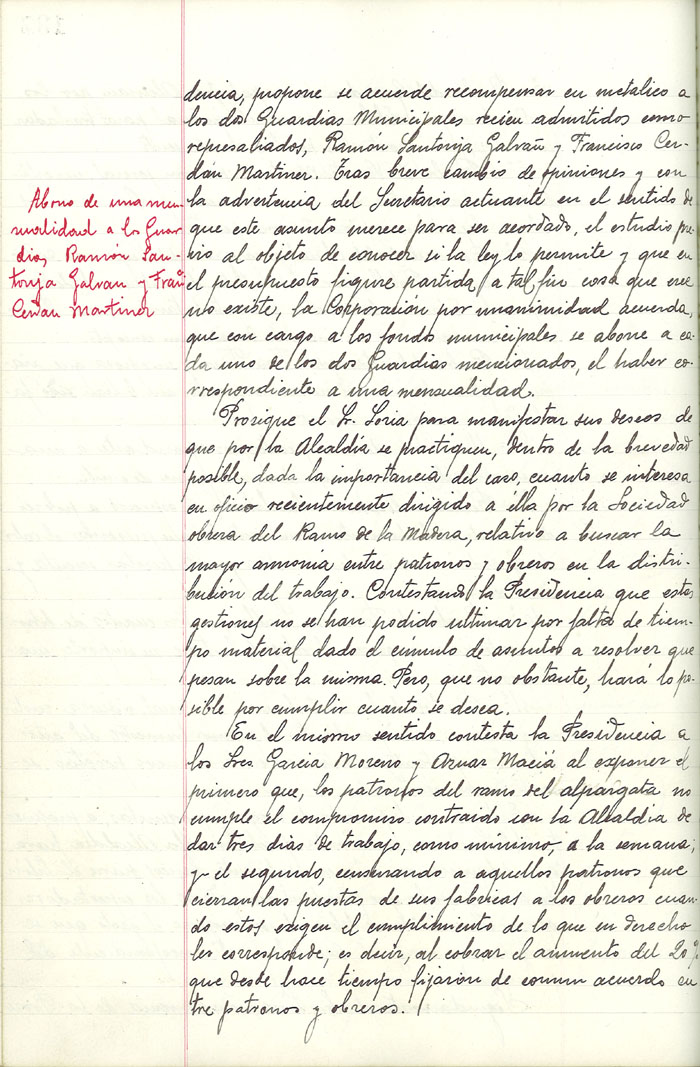 dencia, propone se acuerde recompensar en metálico a
los dos Guardias Municipales recien admitidos como
represaliados, Ramón Santonja Galvañ y Francisco Cer-
dán Martinez. Tras breve cambio de opiniones y con
la advertencia del Secretario actuante en el sentido de
que este asunto merece para ser acordado, el estudio pre-
vio al objeto de conocer si la ley lo permite y que en
el presupuesto figure partida a tal fin cosa que cree
no existe, la Corporación por unanimidad acuerda,
que con cargo a los fondos municipales se abone a ca-
da uno de los dos Guardias mencionados, el haber co-
rrespondiente a una mensualidad.
Abono de una men-
sualidad a los Guar-
dias Ramón San-
tonja Galvan y Fran
Cerdan Martinez
Prosigue el Sr. Soria para manifestar sus deseos de
que por la Alcaldía se practiquen, dentro de la brevedad
posible, dada la importancia del caso, cuanto se interesa
en oficio recientemente dirigido a élla por la Sociedad
obrera del Ramo de la Madera, relativo a buscar la
mayor armonia entre patronos y obreros en la distri-
bución del trabajo. Contestando la Presidencia que estas
gestiones no se han podido ultimar por falta de tiem-
po material dado el cúmulo de asuntos a resolver que
pesan sobre la misma. Pero, que no obstante, hará lo po-
sible por cumplir cuanto se desea.
En el mismo sentido contesta la Presidencia a
los Sres Garcia Moreno y Aznar Maciá al exponer el
primero que, los patronos del ramo del alpargata no
cumple el compromiso contraido con la Alcaldía de
dar tres dias de trabajo, como mínimo, a la semana;
y el segundo, censurando a aquellos patronos que
cierran las puertas de sus fabricas a los obreros cuan-
do estos exigen el cumplimiento de lo que en derecho
les corresponde; es decir, al cobrar el aumento del 20 %
que desde hace tiempo fijaron de comun acuerdo en
tre patronos y obreros.